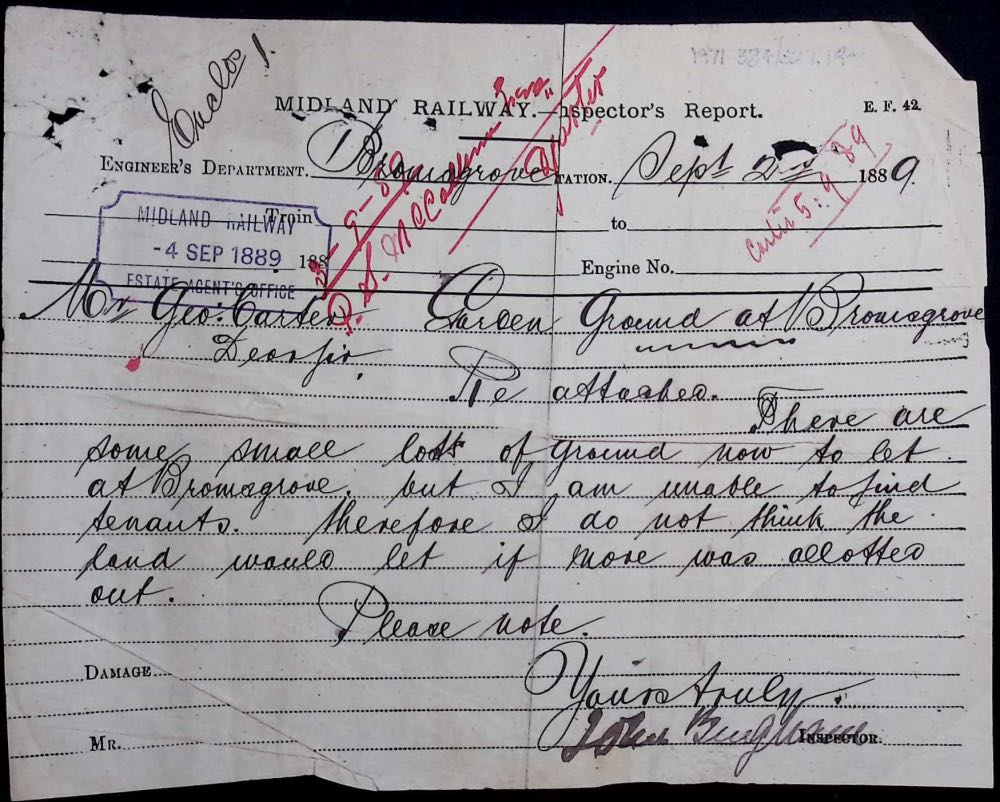 Enclos 1.
MIDLAND RAILWAY.—Inspector's Report.
E. F. 42.
ENGINEER'S DEPARTMENT. Bromsgrove STATION. Sept 2nd 1889.
Train to
MIDLAND RAILWAY
-4 SEP 1889
ESTATE AGENT'S OFFICE
188
Engine No.
Carter 5.9.89
Mr Geo. Carter Garden Ground at Bromsgrove
Dear Sir,
Re attached.
There are
some small lots of ground now to let
at Bromsgrove. but I am unable to find
tenants. therefore I do not think the
land would let if more was allotted
out.
Please note.
Yours truly.
DAMAGE
John Bingham INSPECTOR.
MR.